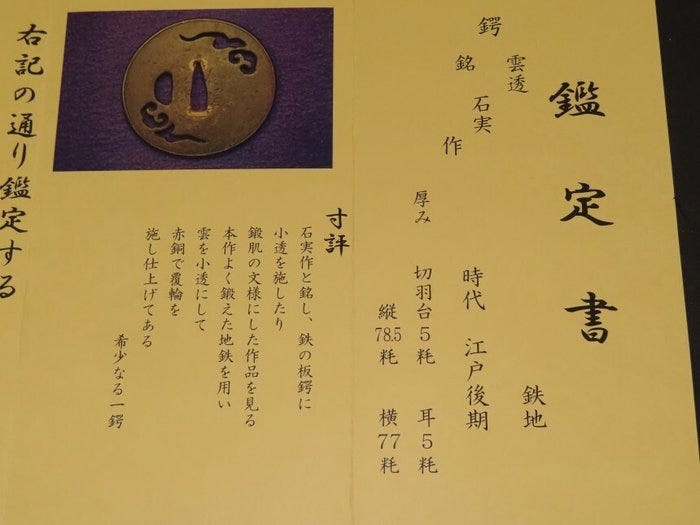 鑑定書
鉄地
鍔 雲透
銘 石実作
時代 江戸後期
厚み 切羽台5粍 耳5粍
縦78.5粍 横77粍
寸評
石実作と銘し、鉄の板鍔に
小透を施したり
鍛肌の文様にした作品を見る
本作よく鍛えた地鉄を用い
雲を小透にして
赤銅で覆輪を
施し仕上げてある
希少なる一鍔
右記の通り鑑定する